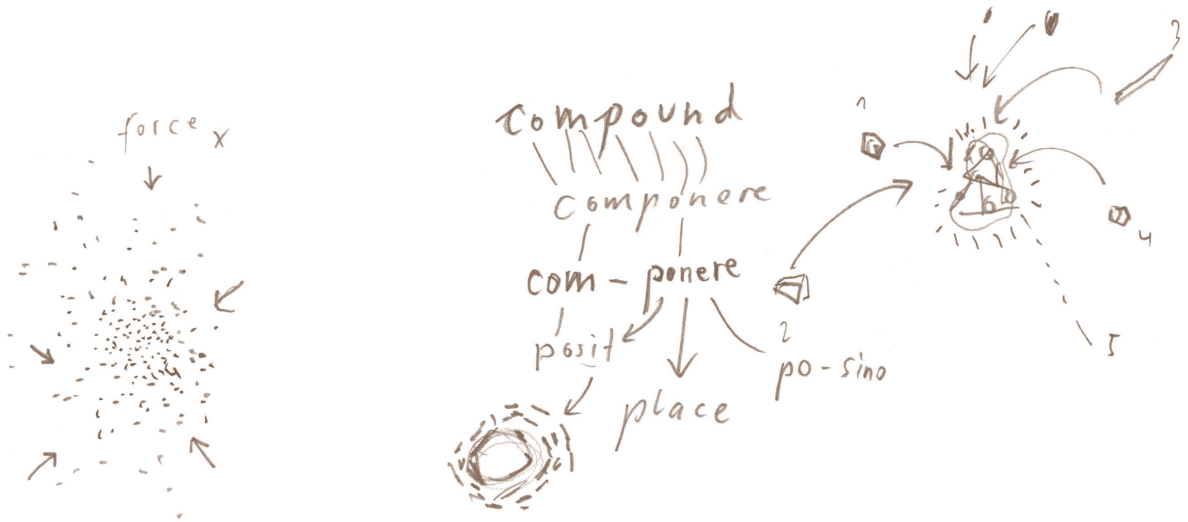 force x
compound
componere
com - ponere
posit
po-sino
place
1
2
3
4
5